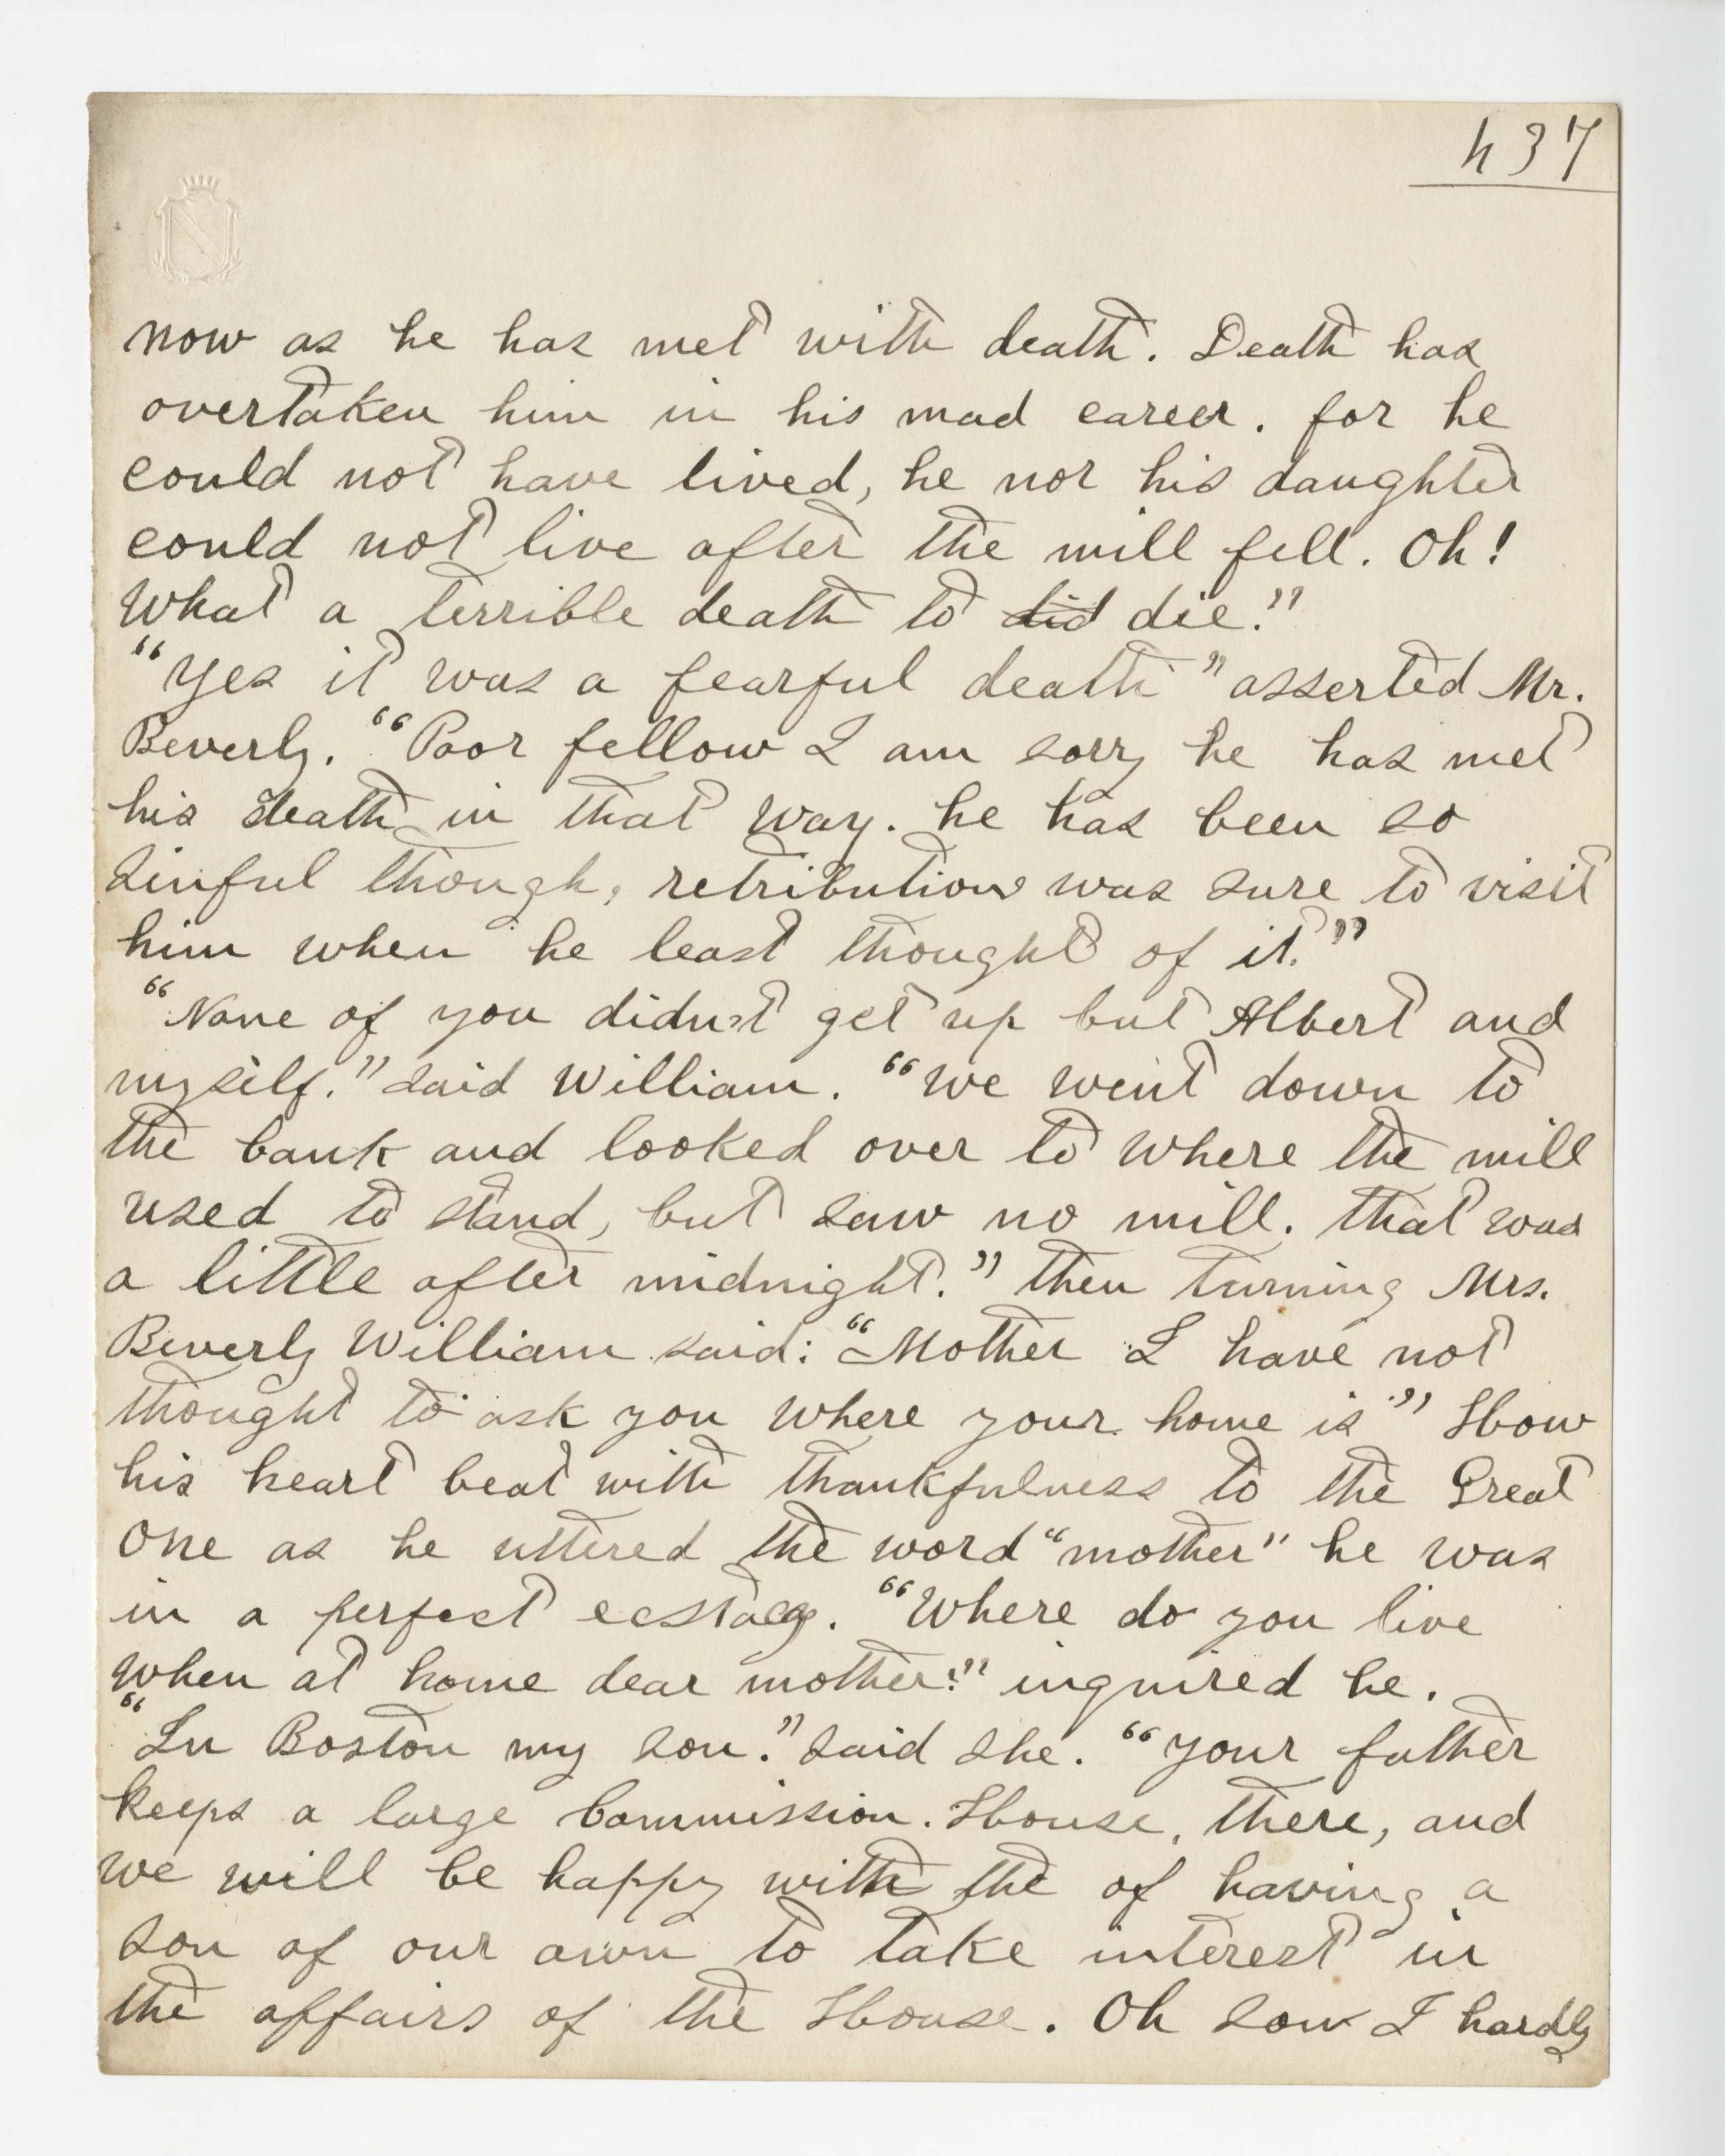 437
now as he has met with death. Death has
overtaken him in his mad career. for he
could not have lived, he nor his daughter
could not live after the mill fell. Oh!
What a terrible death to did die."
"Yes it was a fearful death" asserted Mr.
Beverly. "Poor fellow I am sorry he has met
his death in that way. he has been so
sinful though, retribution was sure to visit
him when he least thought of it."
"None of you didn't get up but Albert and
myself." said William. "we went down to
the bank and looked over to where the mill
used to stand, but saw no mill. that was
a little after midnight." then turning Mrs.
Beverly William said: "Mother I have not
thought to ask you where your home is" How
his heart beat with thankfulness to the Great
One as he uttered the word "mother" he was
in a perfect ecstacy. "Where do you live
when at home dear mother?" inquired he.
"In Boston my son." said she. "your father
keeps a large Commission. House, there, and
we will be happy with the of having a
son of our own to take interest in
the affairs of the House. Oh son I hardly